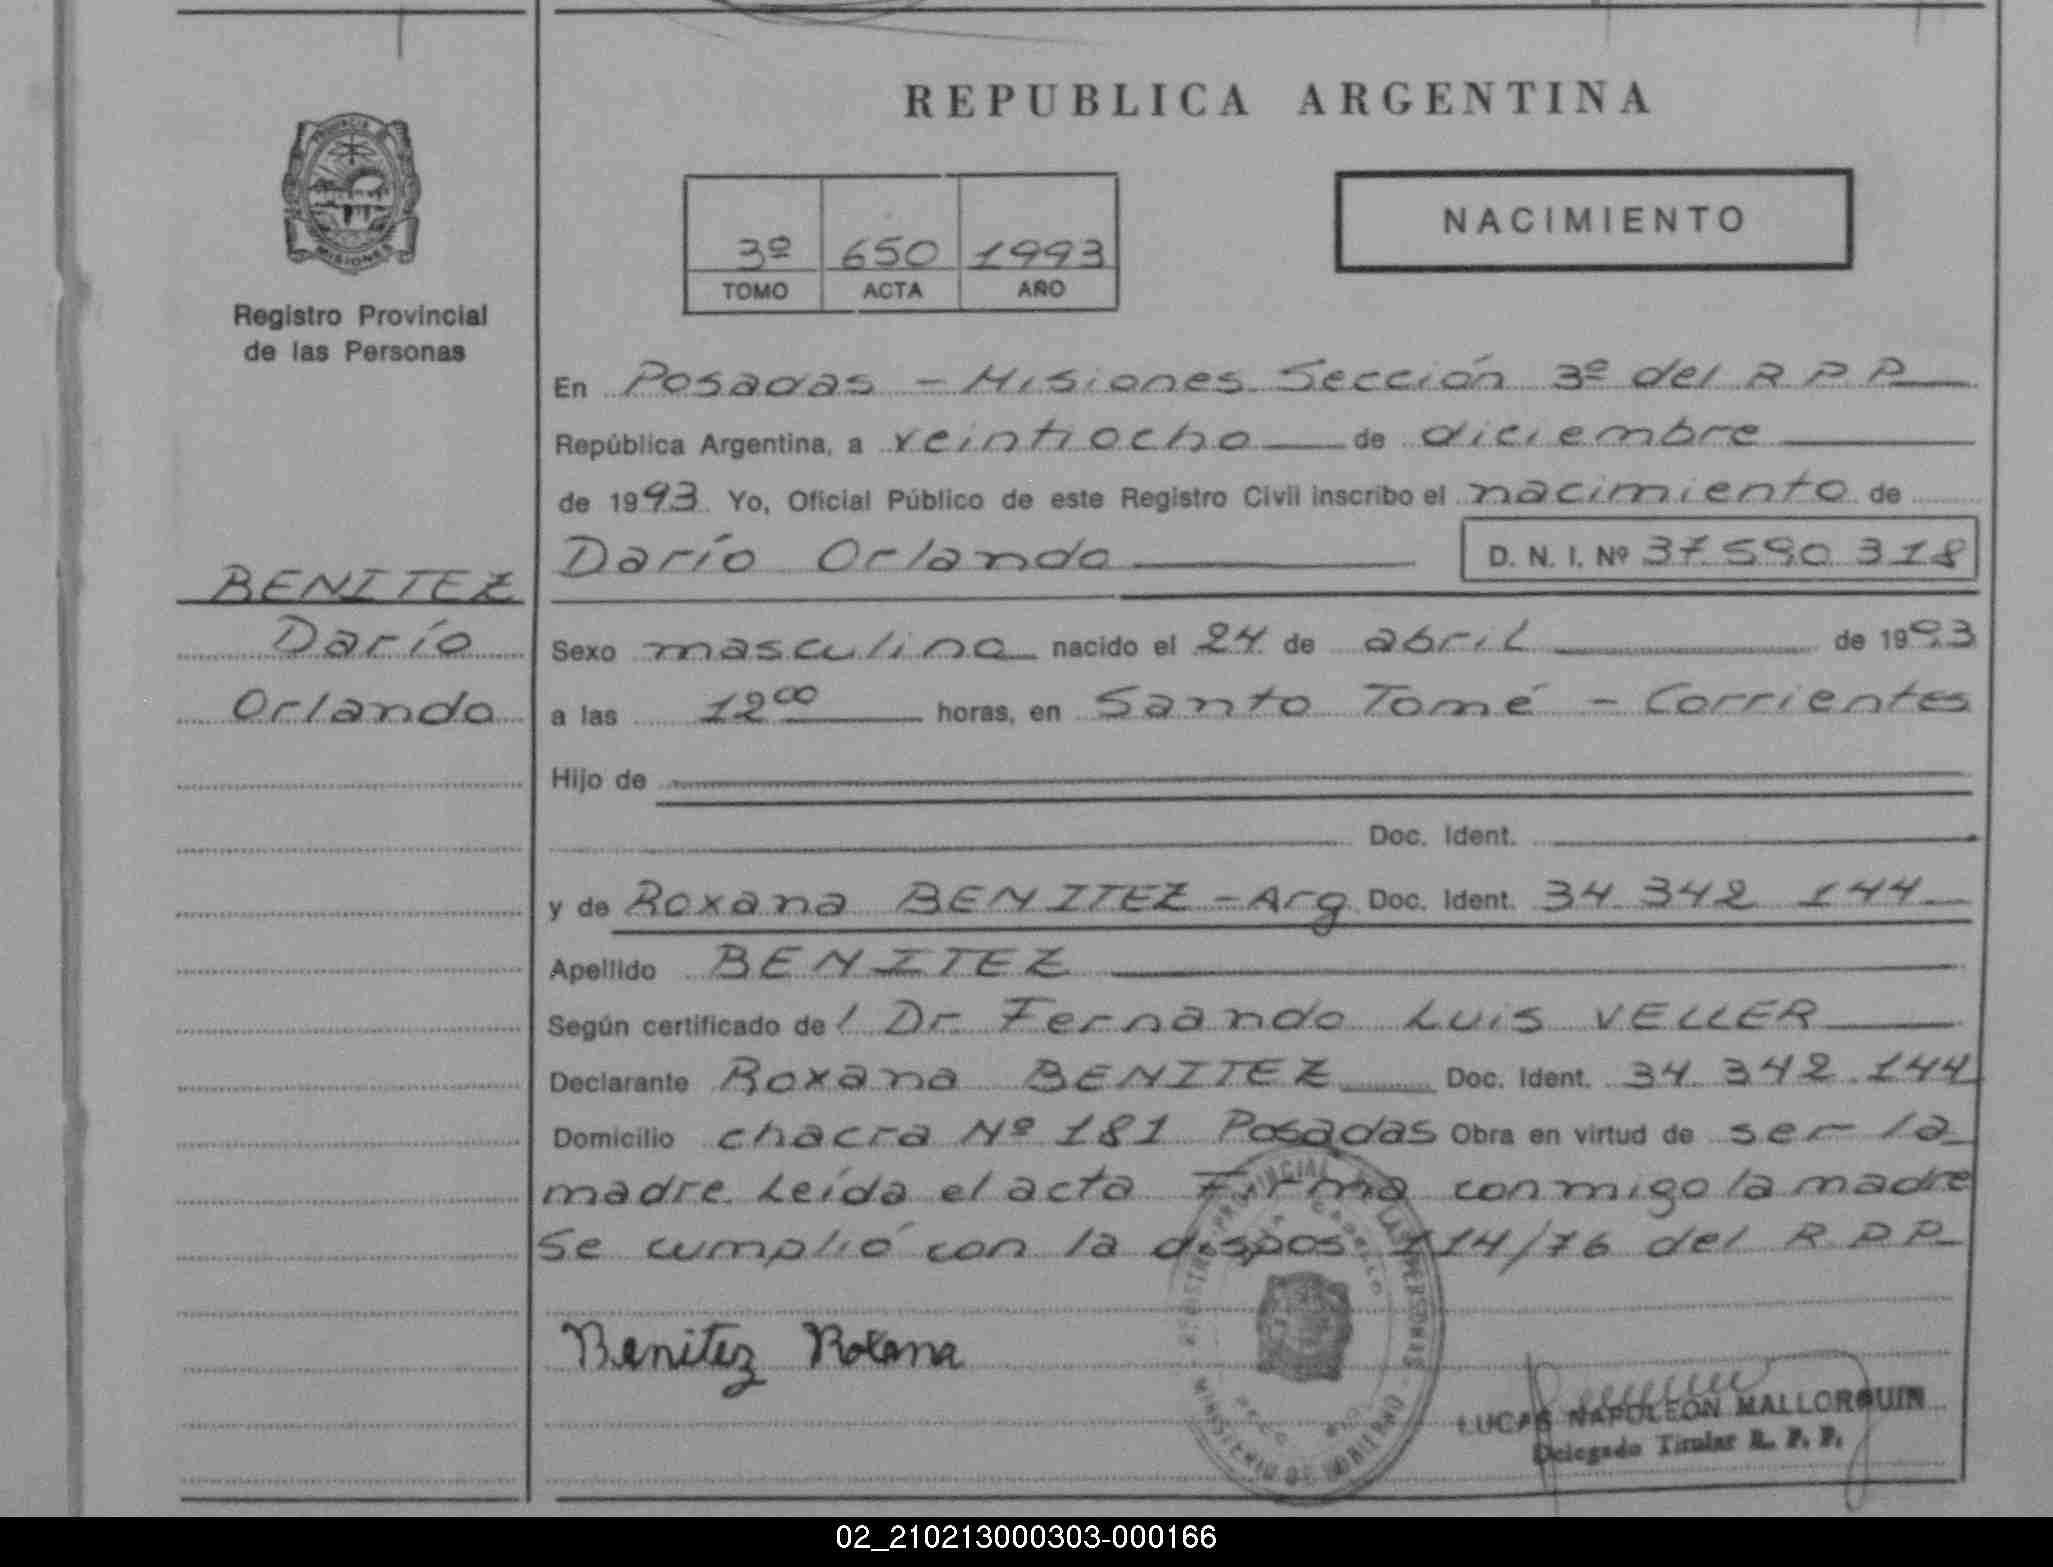 REPUBLICA ARGENTINA
PROVINCIA DE
MISIONES
Registro Provincial
de las Personas
3º 650 1993
TOMO ACTA AÑO
NACIMIENTO
En Posadas - Misiones Sección 3º del R P P
República Argentina, a veintiocho de diciembre
de 1993 Yo, Oficial Público de este Registro Civil inscribo el nacimiento de
Darío Orlando D. N. I. Nº 37.590.318
BENITEZ
Darío
Orlando
Sexo masculino nacido el 24 de abril de 1993
a las 12 00 horas, en Santo Tomé - Corrientes
Hijo de
Doc. Ident.
y de Roxana BENITEZ - Arg Doc. Ident. 34.342 144
Apellido BENITEZ
Según certificado del Dr. Fernando Luis VELLER
Declarante Roxana BENITEZ Doc. Ident. 34.342.144
Domicilio chacra Nº 181 Posadas Obra en virtud de ser la
madre. Leída el acta Firma conmigo la madre
Se cumplió con la dispos. 114/76 del R.P.P.
REGISTRO PROVINCIAL DE LAS PERSONAS
MINISTERIO DE GOBIERNO
Benitez Roxana
LUCAS NAPOLEON MALLORQUIN
Delegado Titular R. P. P.
02_210213000303-000166